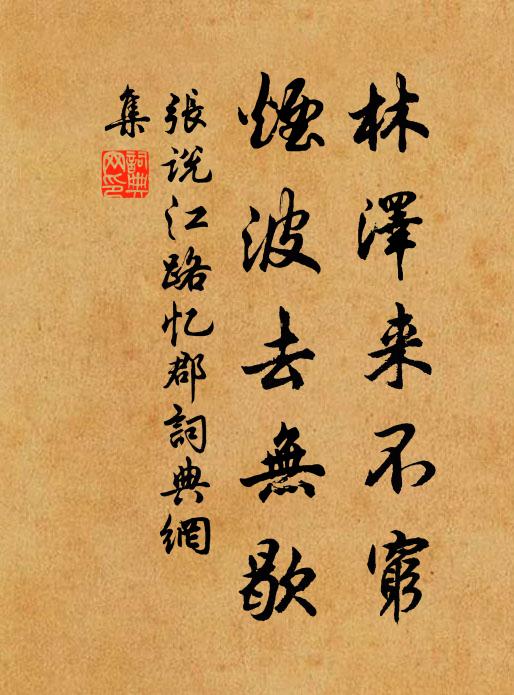 林澤来不窮
煙波去無歇
張説江路忆郡詞典網
集
詞典網印